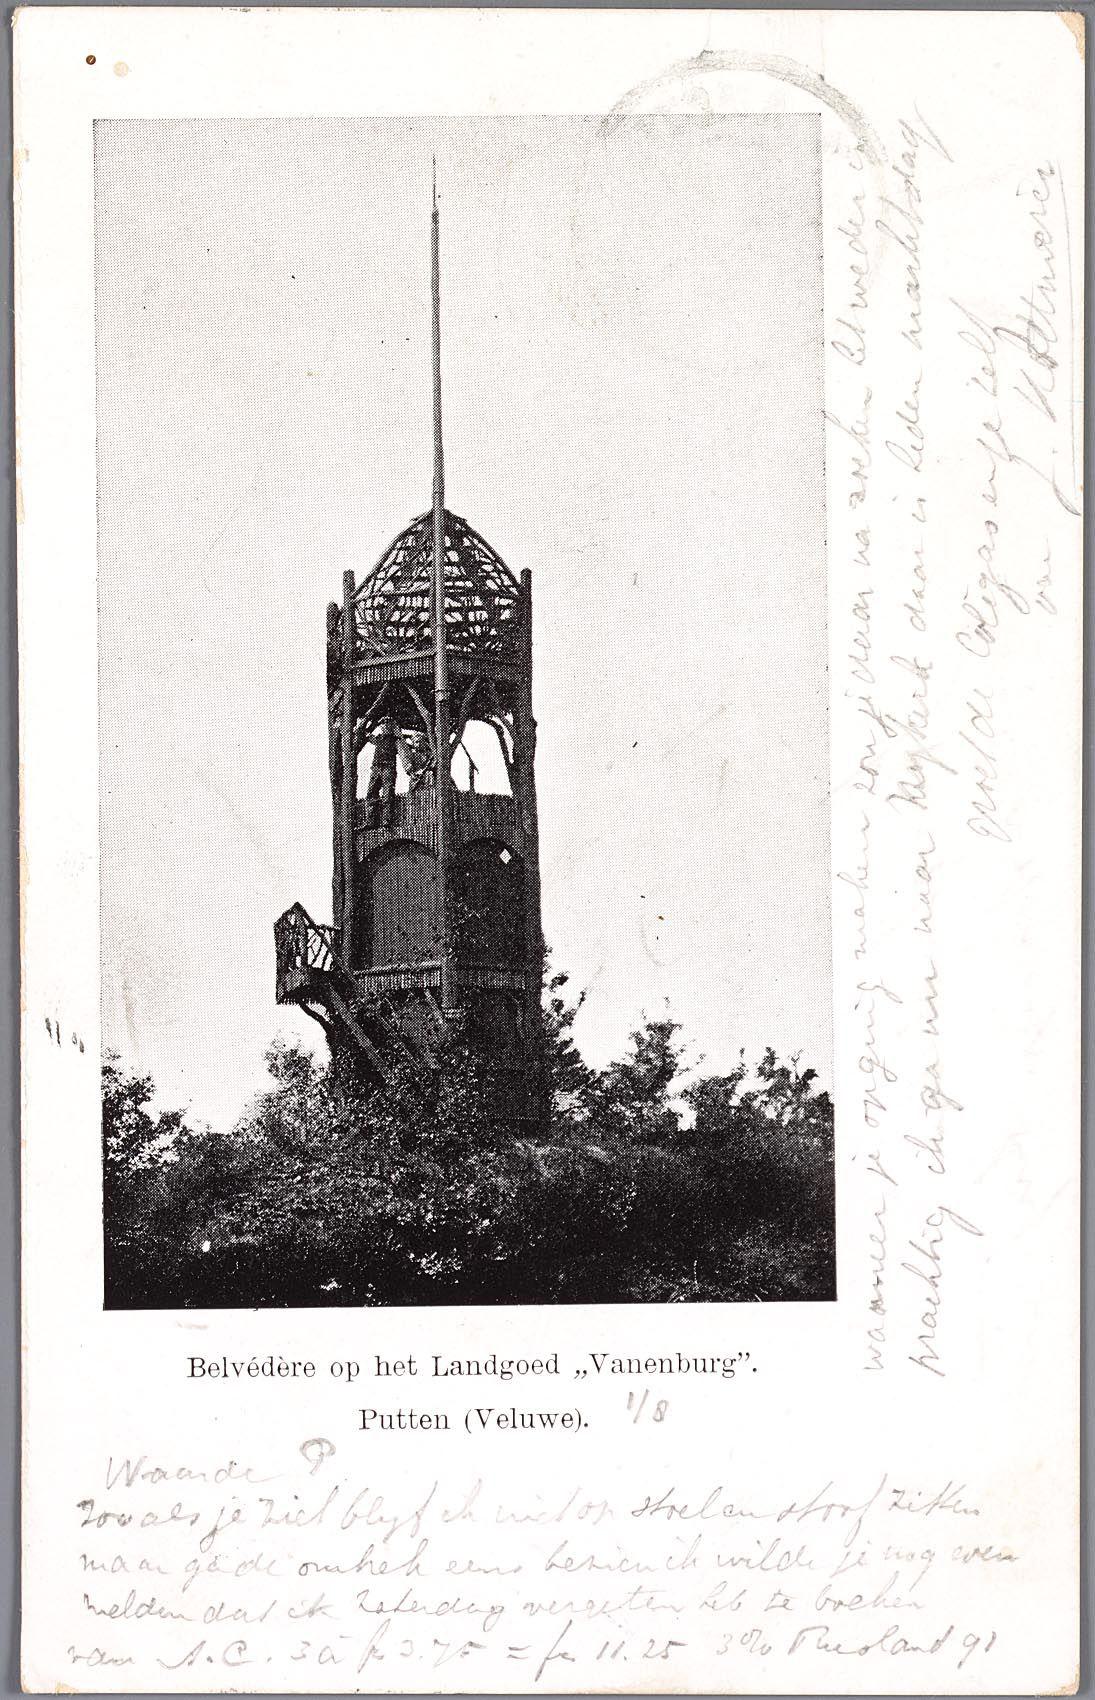 Belvédère op het Landgoed „Vanenburg”.
Putten (Veluwe). 1/8
Waarde P
zooals je ziet blyf ik niet op stoel en stoof zitten
maar ga de omtrek eens bezien ik wilde je nog even
melden dat ik Zaterdag vergeten heb te boeken
van A.C. 3 à f 3.75 = f 11.25 3% 91
wanneer je maken zou na het weder is
prachtig ik ga nu naar Nykerk daar is heden marktdag
groet de Colegas en je zelf